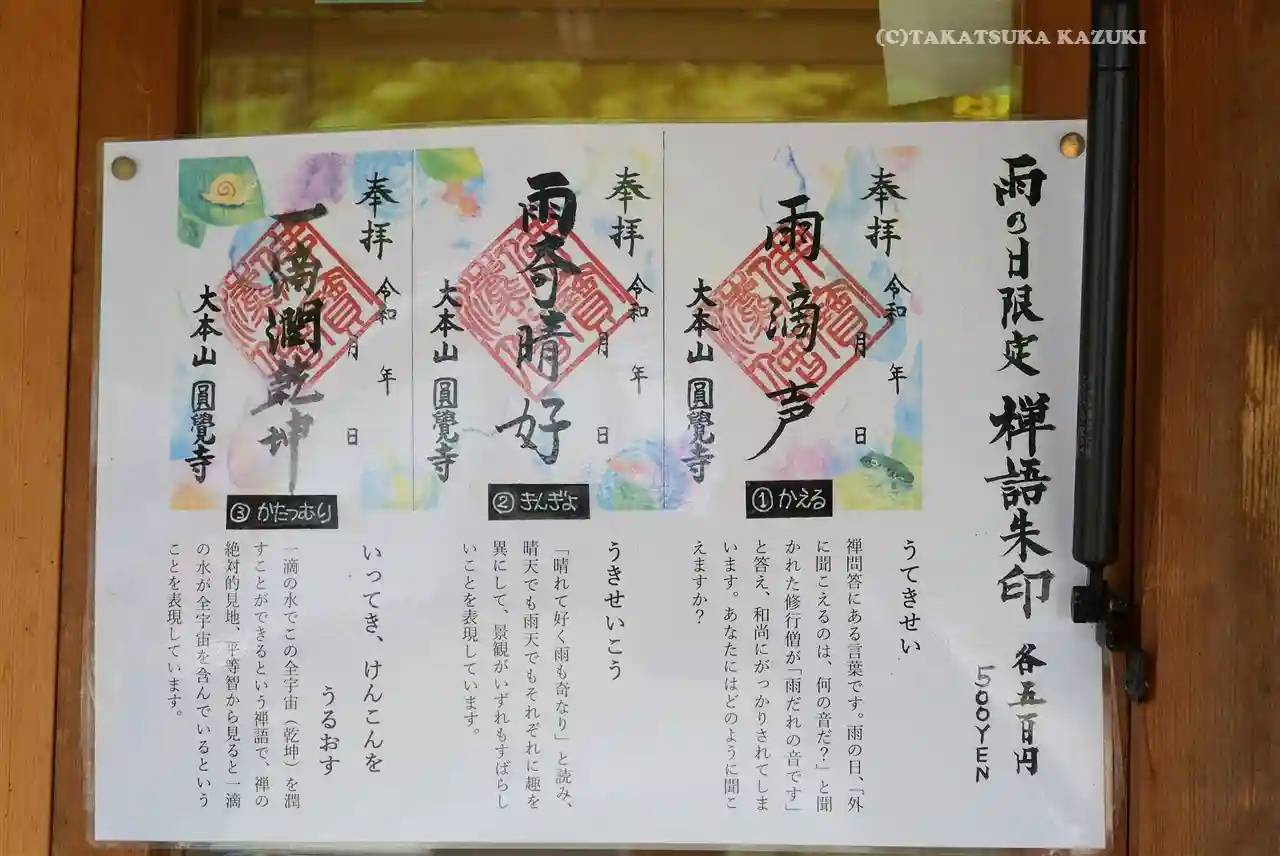 (C)TAKATSUKA KAZUKI
雨の日限定 禅語朱印 各五百円
500YEN
奉拝 令和 年
月 日
雨滴声
大本山 圓覺寺
①かえる
うてきせい
禅問答にある言葉です。雨の日、「外
に聞こえるのは、何の音だ?」と聞
かれた修行僧が「雨だれの音です」
と答え、和尚にがっかりされてしま
います。あなたにはどのように聞こ
えますか?
奉拝 令和 年
月 日
雨奇晴好
大本山 圓覺寺
②きんぎょ
うきせいこう
「晴れて好く雨も奇なり」と読み、
晴天でも雨天でもそれぞれに趣を
異にして、景観がいずれもすばらし
いことを表現しています。
奉拝 令和 年
月 日
一滴潤乾坤
大本山 圓覺寺
③かたつむり
いってき、けんこんを
うるおす
一滴の水でこの全宇宙（乾坤）を潤
すことができるという禅語で、禅の
絶対的見地、平等智から見ると一滴
の水が全宇宙を含んでいるという
ことを表現しています。